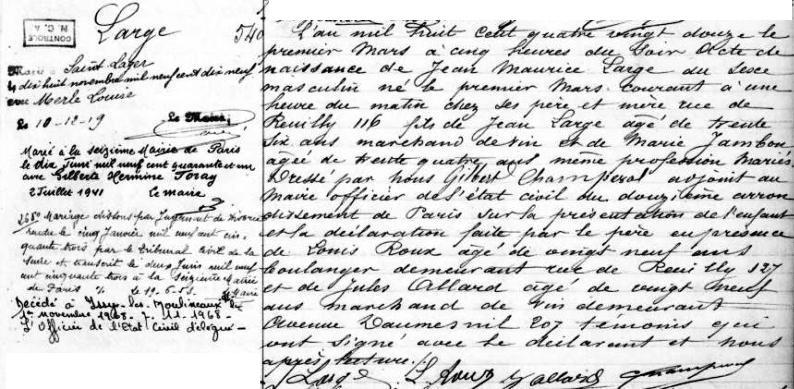 CONTROLE
N.C.A.
Large
540
Marié à Saint Lager
le dix huit novembre mil neuf cent dix neuf
avec Merle Louise
Le 10-12-19 Le Maire,
Marié à la seizième Mairie de Paris
le dix Juin mil neuf cent quarante et un
avec Gilberte Hermine Toray
2 Juillet 1941 Le maire
Mariage dissous par Jugement de divorce
rendu le cinq Janvier mil neuf cent cin-
quante trois par le tribunal civil de la
Seine et transcrit le deux Juin mil neuf
cent cinquante trois à la seizième Mairie
de Paris ./. le 19.6.53
Décédé à Issy-les-Moulineaux le
1er novembre 1968 - 7.11.1968 -
L'Officier de l'Etat Civil délégué -
L'an mil huit cent quatre vingt douze le
premier Mars à cinq heures du soir Acte de
naissance de Jean Maurice Large du sexe
masculin né le premier Mars courant à une
heure du matin chez ses père et mère rue de
Reuilly 116 fils de Jean Large âgé de trente
six ans marchand de vin et de Marie Jambon
agée de trente quatre ans même profession Mariés
Dressé par nous Gibert Champeral adjoint au
Maire officier de l'état civil du douzième arron
dissement de Paris sur la présentation de l'enfant
et la déclaration faite par le père en présence
de Louis Roux âgé de vingt neuf ans
boulanger demeurant rue de Reuilly 127
et de Jules Allard âgé de vingt neuf
ans marchand de vin demeurant
Avenue Daumesnil 207 témoins qui
ont signé avec le déclarant et nous
après lecture ./.
Large L. Roux J allard